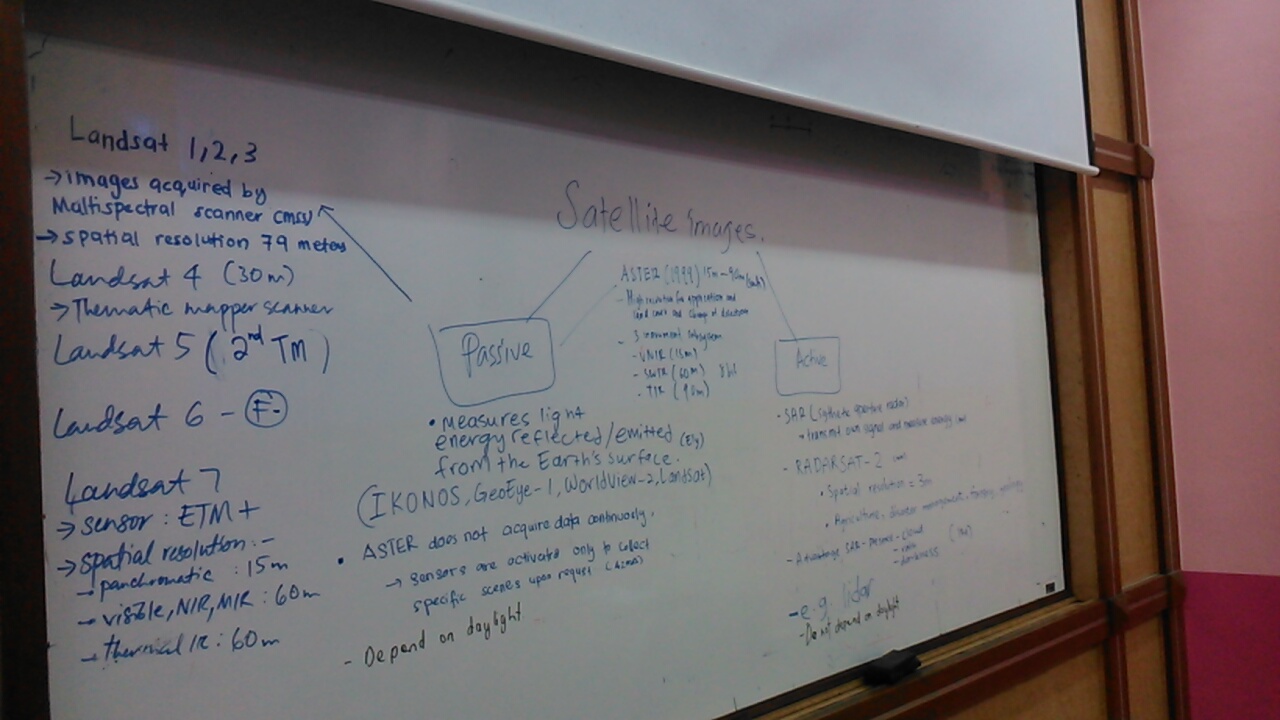 Landsat 1,2,3
→ images acquired by
Multispectral scanner (MSS)
→ spatial resolution 79 meters
Landsat 4 (30m)
→ Thematic mapper scanner
Landsat 5 (2nd TM)
Landsat 6 - F.
Landsat 7
→ sensor : ETM+
→ spatial resolution :-
→ panchromatic : 15m
→ visible, NIR, MIR : 60m
→ thermal IR : 60m
Satellite images.
Passive
• measures light
energy reflected/emitted
from the Earth's surface.
(IKONOS, GeoEye-1, WorldView-2, Landsat)
• ASTER does not acquire data continously.
→ sensors are activated only to collect
specific scenes upon request
- Depend on daylight
ASTER (1999) 15m - 90m
- High resolution for application and
land cover and change of detection
- 3 subsystem
- VNIR (15m)
- SWIR (60m) 8 bit
- TIR (90m)
Active
- SAR (synthetic aperture radar)
→ transmit own signal and measure energy
- RADARSAT-2
• Spatial resolution = 3m
• Agriculture, disaster management, forestry,
- Advantage SAR - cloud
- rain
- darkness
- e.g. lidar
- Do not depend on daylight